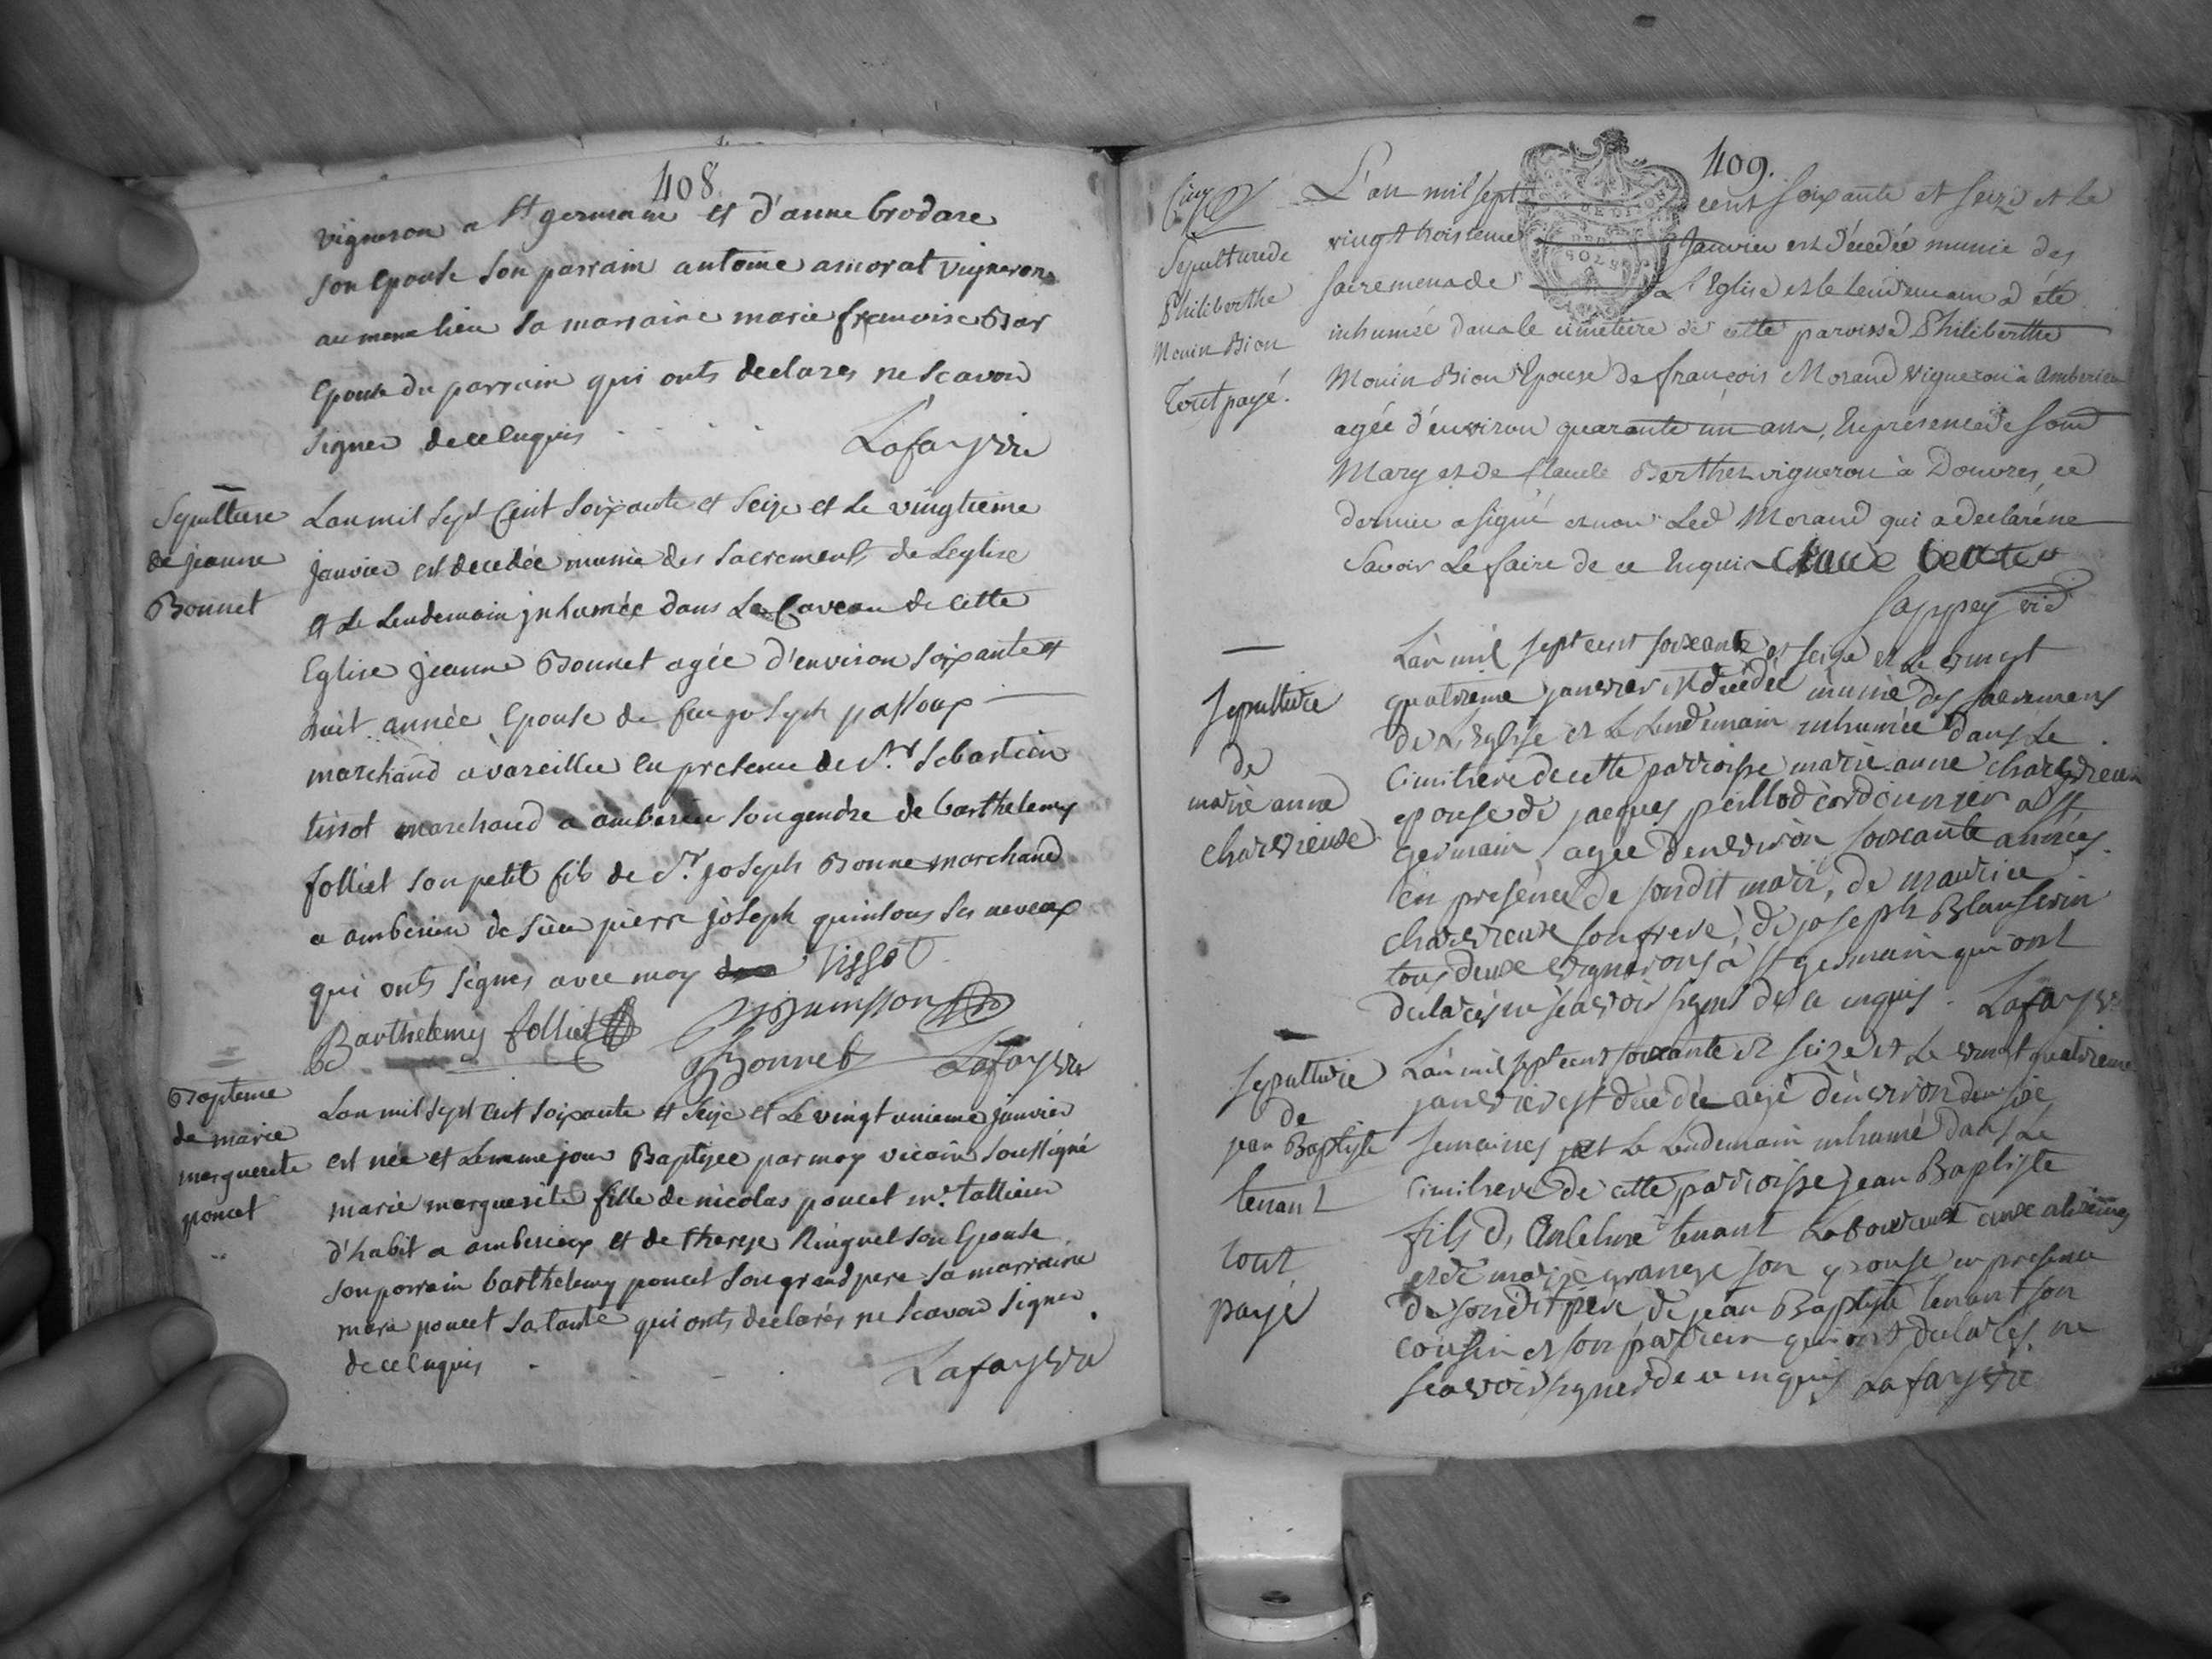 408
vigneron a St germain et d'anne brodare
son Epouse son parrain antoine amorat vigneron
au meme lieu sa marraine marie francoise Bar
Epouse du parrain qui onts declares ne scavoir
signer de ce Enquis
Lafay vic
Sepulture
de jeanne
Bonnet
Lan mil sept Cent soixante et seize et le vingtieme
janvier est decedée munie des sacrements de Leglise
et le lendemain jnhumée dans Le Caveau de cette
Eglise jeanne Bonnet agée d'environ soixante et
huit année Epouse de feu joseph
marchand a vareille en presence de Sr. Sebastien
tissot marchand a amberieu son gendre de barthelemy
folliet son petit fils de Sr. joseph Bonne marchand
a amberieu de sieu pierre joseph quinsons ses neveux
qui onts signes avec moy Tissot
Barthelemy folliet
Bonnet Lafay vic
Bapteme
de marie
marguerite
poncet
Lan mil sept cent soixante et seize et Le vingt unieme janvier
est née et Le meme jour Baptisée par moy vicaire soussigné
marie marguerite fille de nicolas poncet mr. tallieur
d'habit a amberieux et de therese Ringuet son Epouse
son parrain barthelemy poncet son grand pere sa marraine
marie poncet sa tante qui onts declarés ne scavoir signer
de ce Enquis
Lafay vic
409.
Sepulture de
Philiberthe
Monin Bion
Tout payé.
L'an mil sept cent soixante et seize et le
vingt troisieme Janvier est décedée munie des
sacremens de L'Eglise et le lendemain a été
inhumée dans le cimetiere de cette paroisse Philiberthe
Monin Bion Epouse de françois Morand vigneron à Amberieu
agée d'environ quarante un ans, En presence de son
Mary et de Claude Berthet vigneron à Douvres, ce
dernier a signé et non Led Morand qui a declaré ne
Savoir Le faire de ce Enquis Claude bertet
Sappey vic
Sepulture
de
marie anne
charvrieuxe
Làn mil sept cent soixante et seize et Le vingt
quatrieme janvier est decedée munie des sacremens
de L'Eglise et Le Lendemain inhumée dans Le
Cimitiere de cette parroisse marie anne
epouse de jacques peillod cordounnier a St
germain agée denviron soixante années
en presence de sondit mari, de maurice
charvrieux son frere, de joseph Blanserin
tous deux vignerons à St germain qui ont
declarés ne scavoir signer de ce enquis. Lafay vic
sepulture
de
jean Baptiste
tenant
tout
payé
Làn mil sept cent soixante et seize et Le vingt quatrieme
janvier est décedé agé d'environ deu
semaines et Le Lendemain inhumé dans Le
Cimitiere de cette parroisse jean Baptiste
fils d'Anbelme tenant Laboureur aux alimes
et de marie grange son epouse en presence
de son dit pere de jean Baptiste tenant son
cousin et son parrain qui ont declarés ne
scavoir signer de ce enquis Lafay vic